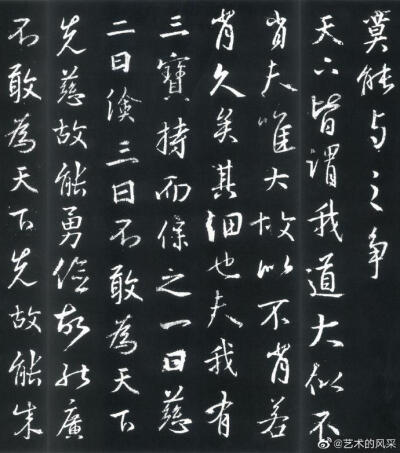 莫能与之争
天下皆谓我道大似不
肖夫唯大故似不肖若
肖久矣其细也夫我有
三寶持而保之一曰慈
二曰儉三曰不敢為天下
先慈故能勇儉故能廣
不敢為天下先故能成
@艺术的风采